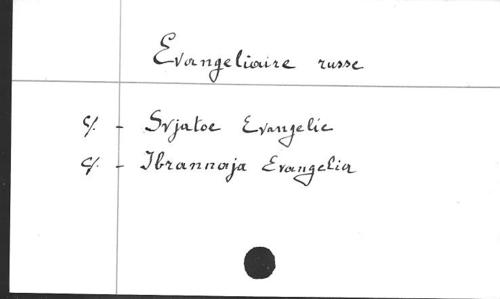 Evangeliaire russe
cf. - Svjatoe Evangelie
cf. - Ibrannaja Evangelia